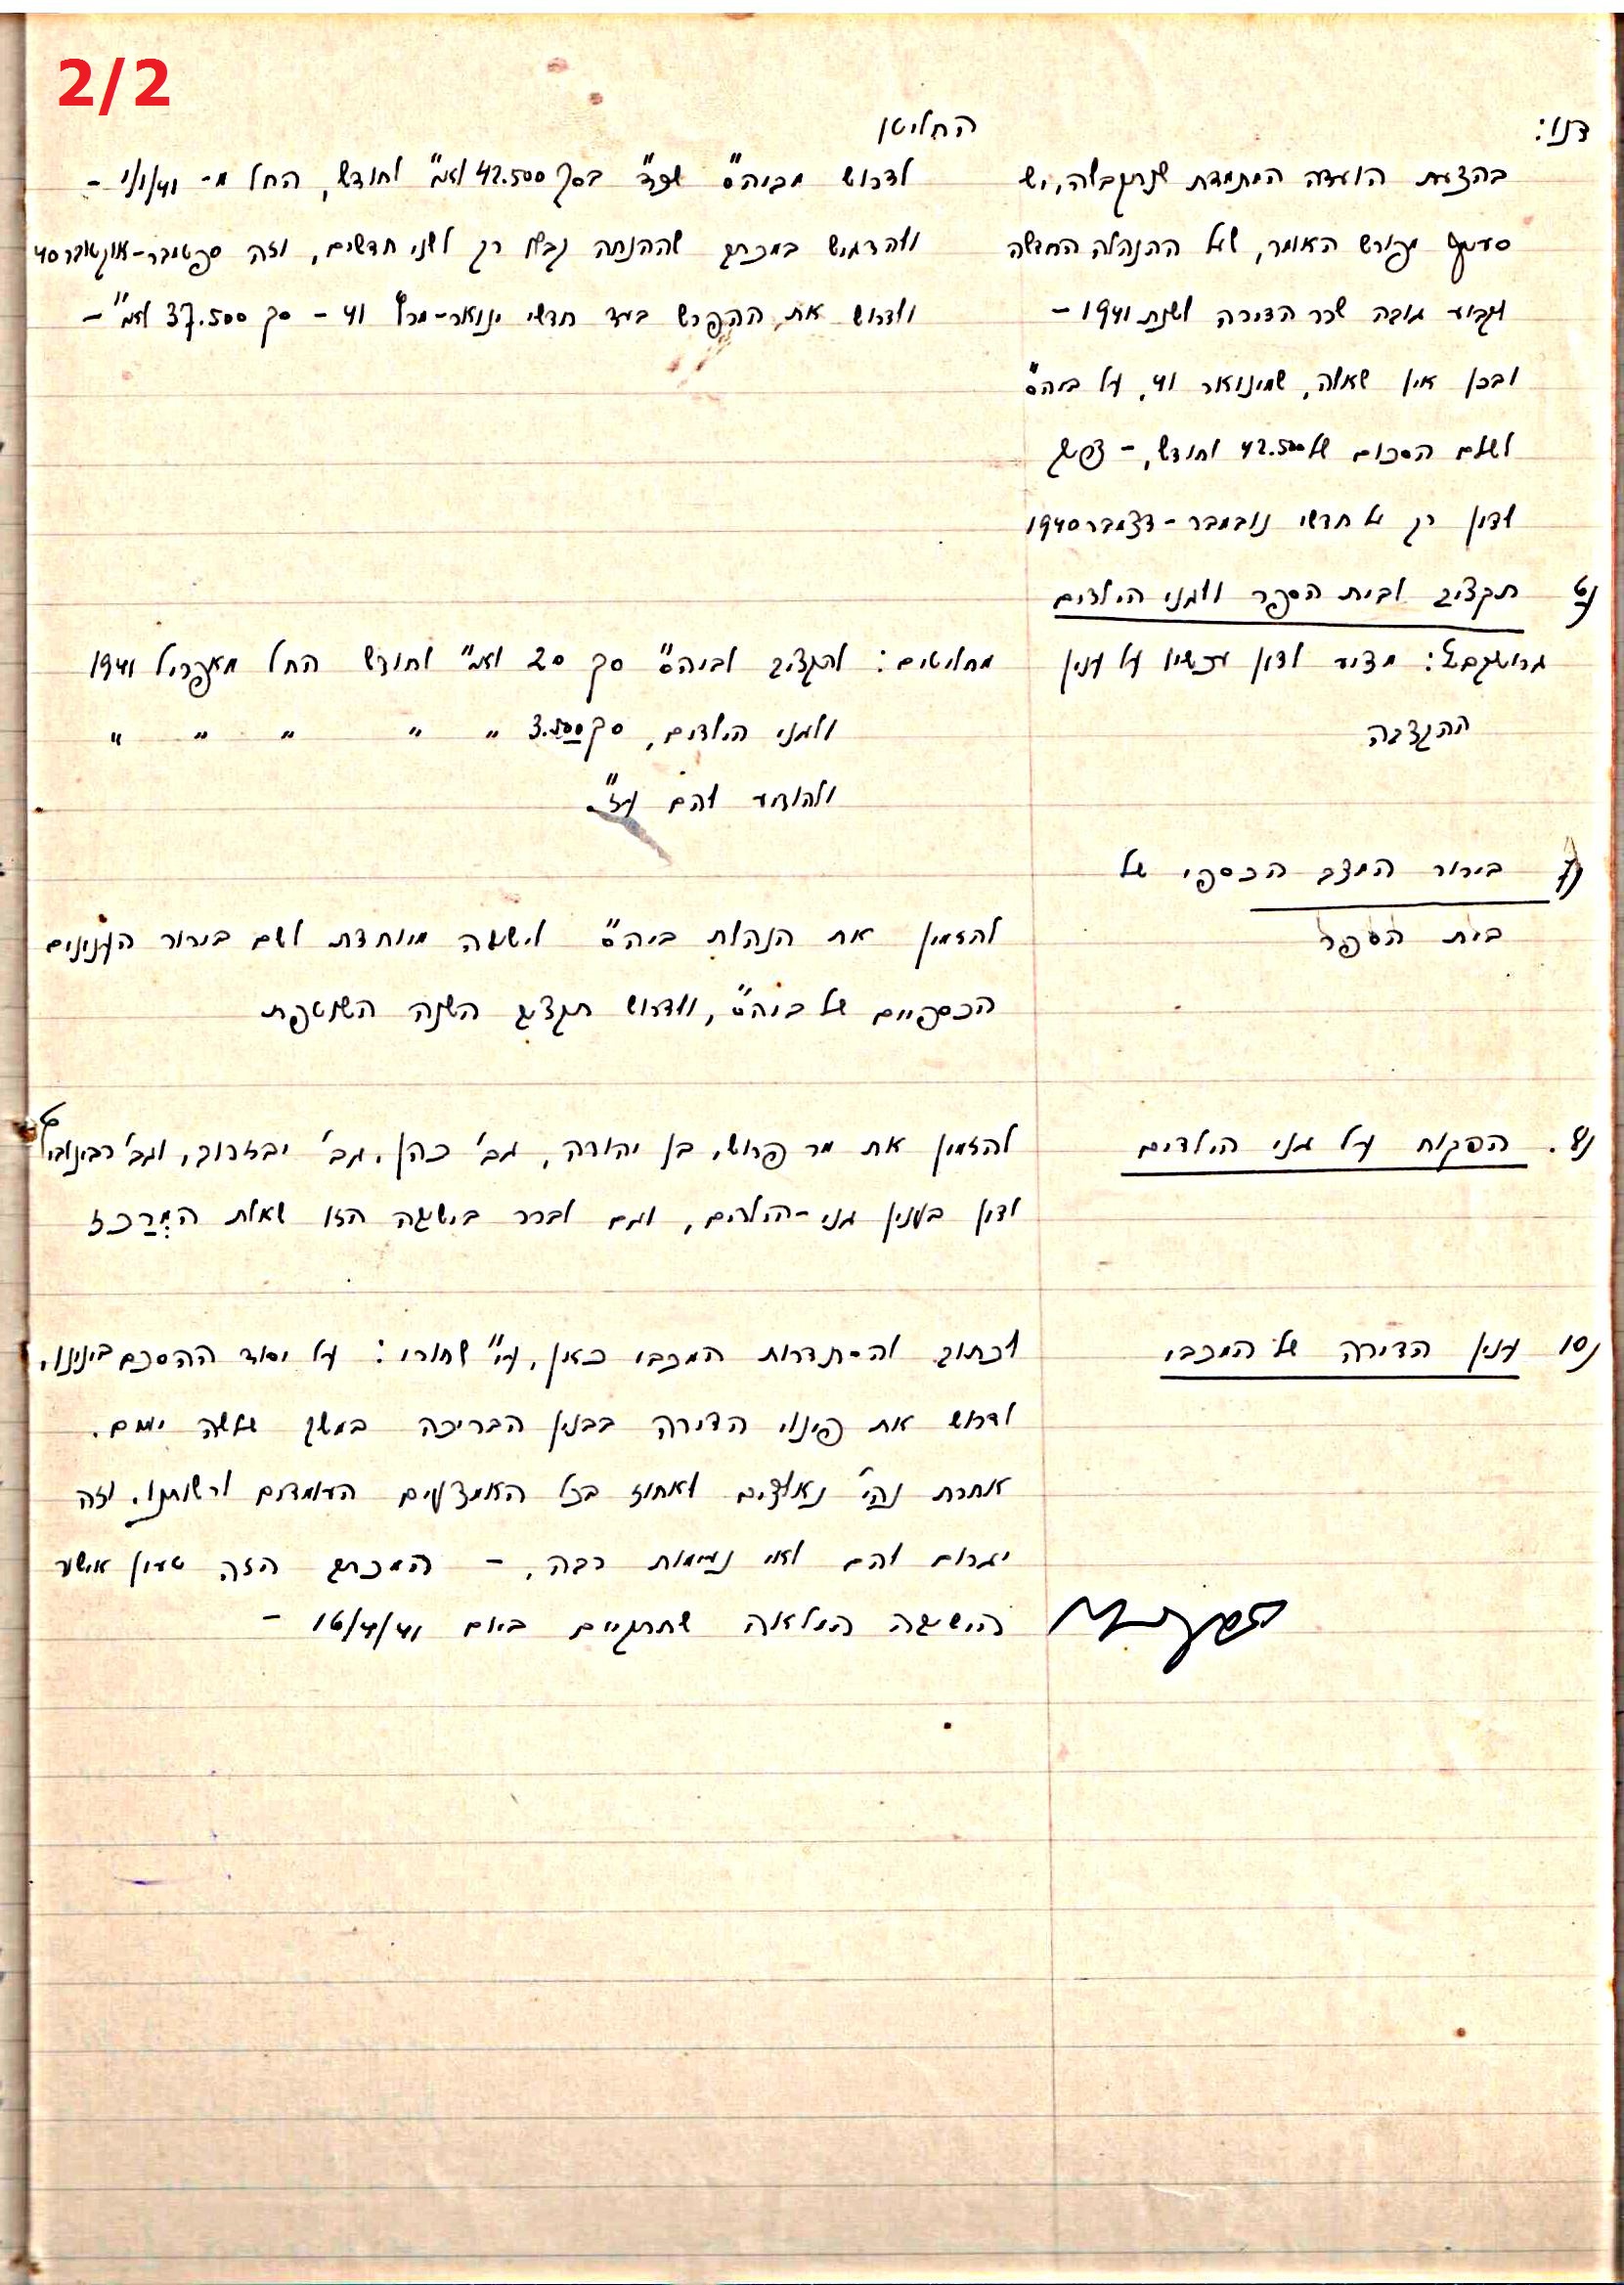 2/2
דנו:
בהצעת הועדה המתמדת שנתקבלה, יש
סעיף מפורש האומר, שעל ההנהלה החדשה
לקבוע גובה שכר הדירה לשנת 1941 -
ובכן אין שאלה, שמינואר 41, על ביה"ס
לשלם הסכום של 42.500 לחודש, -
לדון רק על חדשי נובמבר - דצמבר 1940
תקציב לבית הספר ולגני הילדים
מציע לדון עכשיו על ענין
ההקצבה
בירור המצב הכספי של
בית הספר
הפקוח על גני הילדים
ענין הדירה של המכבי
החליטו
לדרוש מביה"ס שכ"ד בסך 42.500 לא"י לחודש, החל מ- 1/1/41 -
ולהדגיש במכתב שההנחה רק לשני חדשים, וזה ספטמבר-אוקטובר 40
ולדרוש את ההפרש בעד חדשי ינואר-מרץ 41 - סך 37.500 לא"י -
מחליטים: להקציב לביה"ס סך 20 לא"י לחודש החל מאפריל 1941
ולגני הילדים, סך 3.500 " " " " "
ולהודיע להם עי"ז
להזמין את הנהלת ביה"ס לישיבה מיוחדת לשם בירור הענינים
הכספיים של ביה"ס, ולדרוש תקציב השנה השוטפת
להזמין את מר פרוש, בן יהודה, גב' כהן, גב' יבזרוב, וגב' רבינוביץ
לדון בענין גני-הילדים, וגם לברר בישיבה הזו שאלת המְרַכז
לכתוב להסתדרות המכבי כאן, על יסוד ההסכם בינינו,
לדרוש את פינוי הדירה בבנין הבריכה במשך שלשה ימים.
אחרת נהי' נאלצים לאחוז בכל האמצעים העומדים לרשותנו. וזה
יגרום להם לאי נעימות רבה. - המכתב הזה טעון אישור
הישיבה המלאה שתתקיים ביום 16/4/41 -